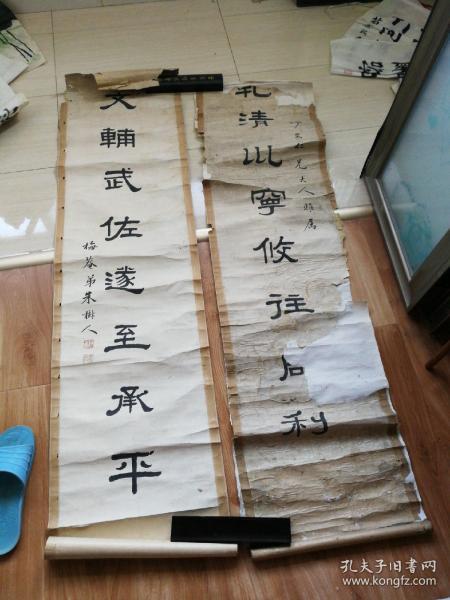 乾清巛寧攸往后利
兄大人雅属
文輔武佐遂至承平
梅菴弟朱樹人
孔夫子旧书网
www.kongfz.com